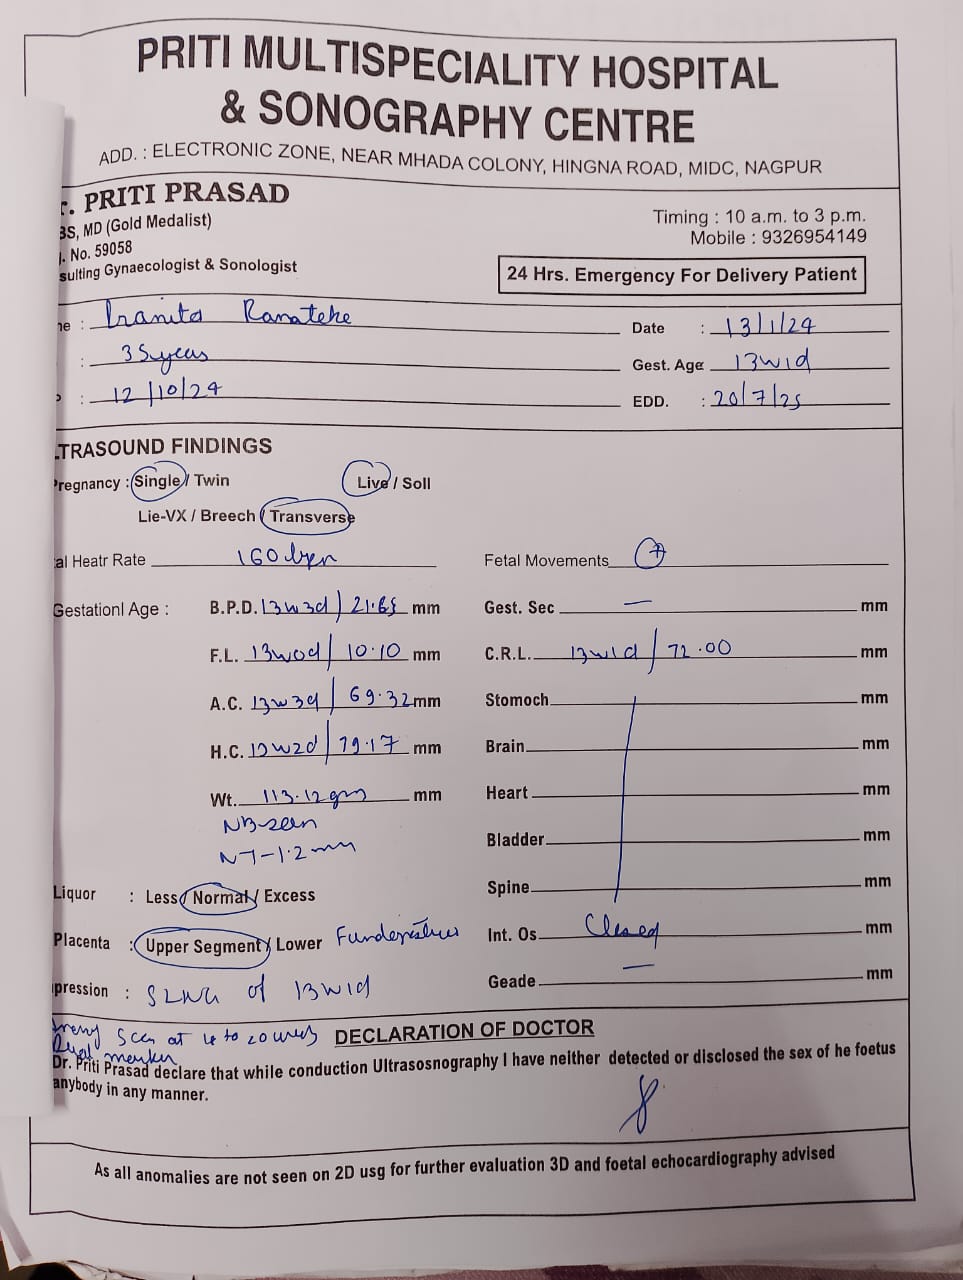 PRITI MULTISPECIALITY HOSPITAL
& SONOGRAPHY CENTRE
ADD. : ELECTRONIC ZONE, NEAR MHADA COLONY, HINGNA ROAD, MIDC, NAGPUR
r. PRITI PRASAD
BS, MD (Gold Medalist)
. No. 59058
sulting Gynaecologist & Sonologist
Timing : 10 a.m. to 3 p.m.
Mobile : 9326954149
24 Hrs. Emergency For Delivery Patient
ne : Ramteke
Date : 13/1/24
: 35years
Gest. Age 13w1d
: 12/10/24
EDD. : 20/7/25
TRASOUND FINDINGS
Pregnancy : Single / Twin Live / Soll
Lie-VX / Breech / Transverse
al Heatr Rate 160 bpm Fetal Movements +
Gestationl Age : B.P.D. 13w3d / 21.65 mm Gest. Sec — mm
F.L. 13w0d / 10.10 mm C.R.L. 13w1d / 72.00 mm
A.C. 13w3d / 69.32 mm Stomoch mm
H.C. 13w2d / 79.17 mm Brain mm
Wt. 113.12gm mm Heart mm
NB-seen
NT-1.2mm
Bladder mm
Liquor : Less / Normal / Excess Spine mm
Placenta : Upper Segment / Lower Int. Os Closed mm
pression : SLIUG of 13w1d Geade — mm
Scan at to 20 weeks
marker
DECLARATION OF DOCTOR
Dr. Priti Prasad declare that while conduction Ultrasosnography I have neither detected or disclosed the sex of he foetus
anybody in any manner.
As all anomalies are not seen on 2D usg for further evaluation 3D and foetal echocardiography advised